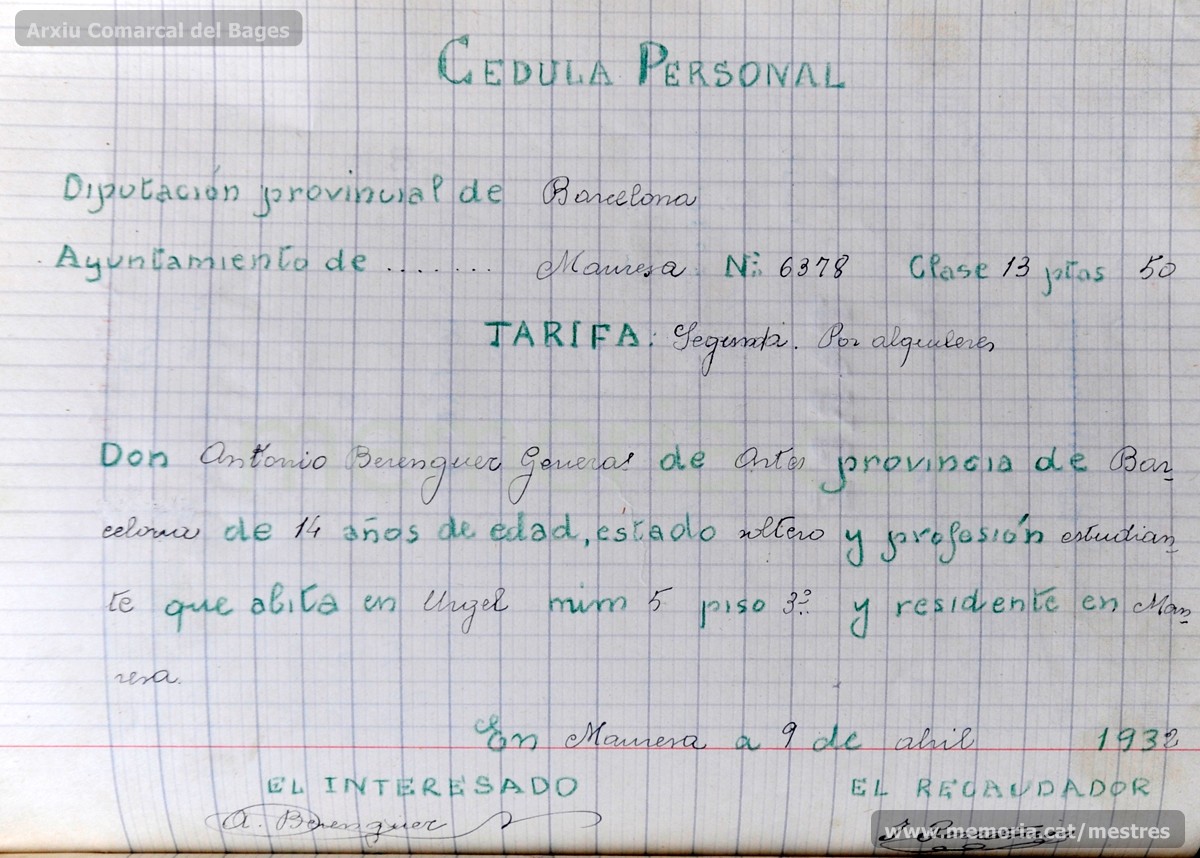 Arxiu Comarcal del Bages
CEDULA PERSONAL
Diputación provincial de Barcelona
Ayuntamiento de ........ Manresa Nº 6378 Clase 13 ptas 50
TARIFA: Segunda. Por alquileres
Don Antonio Berenguer General de Artes provincia de Bar-
celona de 14 años de edad, estado soltero y profesión estudian-
te que abita en Urgel núm 5 piso 3º y residente en Man-
resa.
En Manresa a 9 de abril 1932
EL INTERESADO EL RECAUDADOR
A. Berenguer
www.memoria.cat/mestres